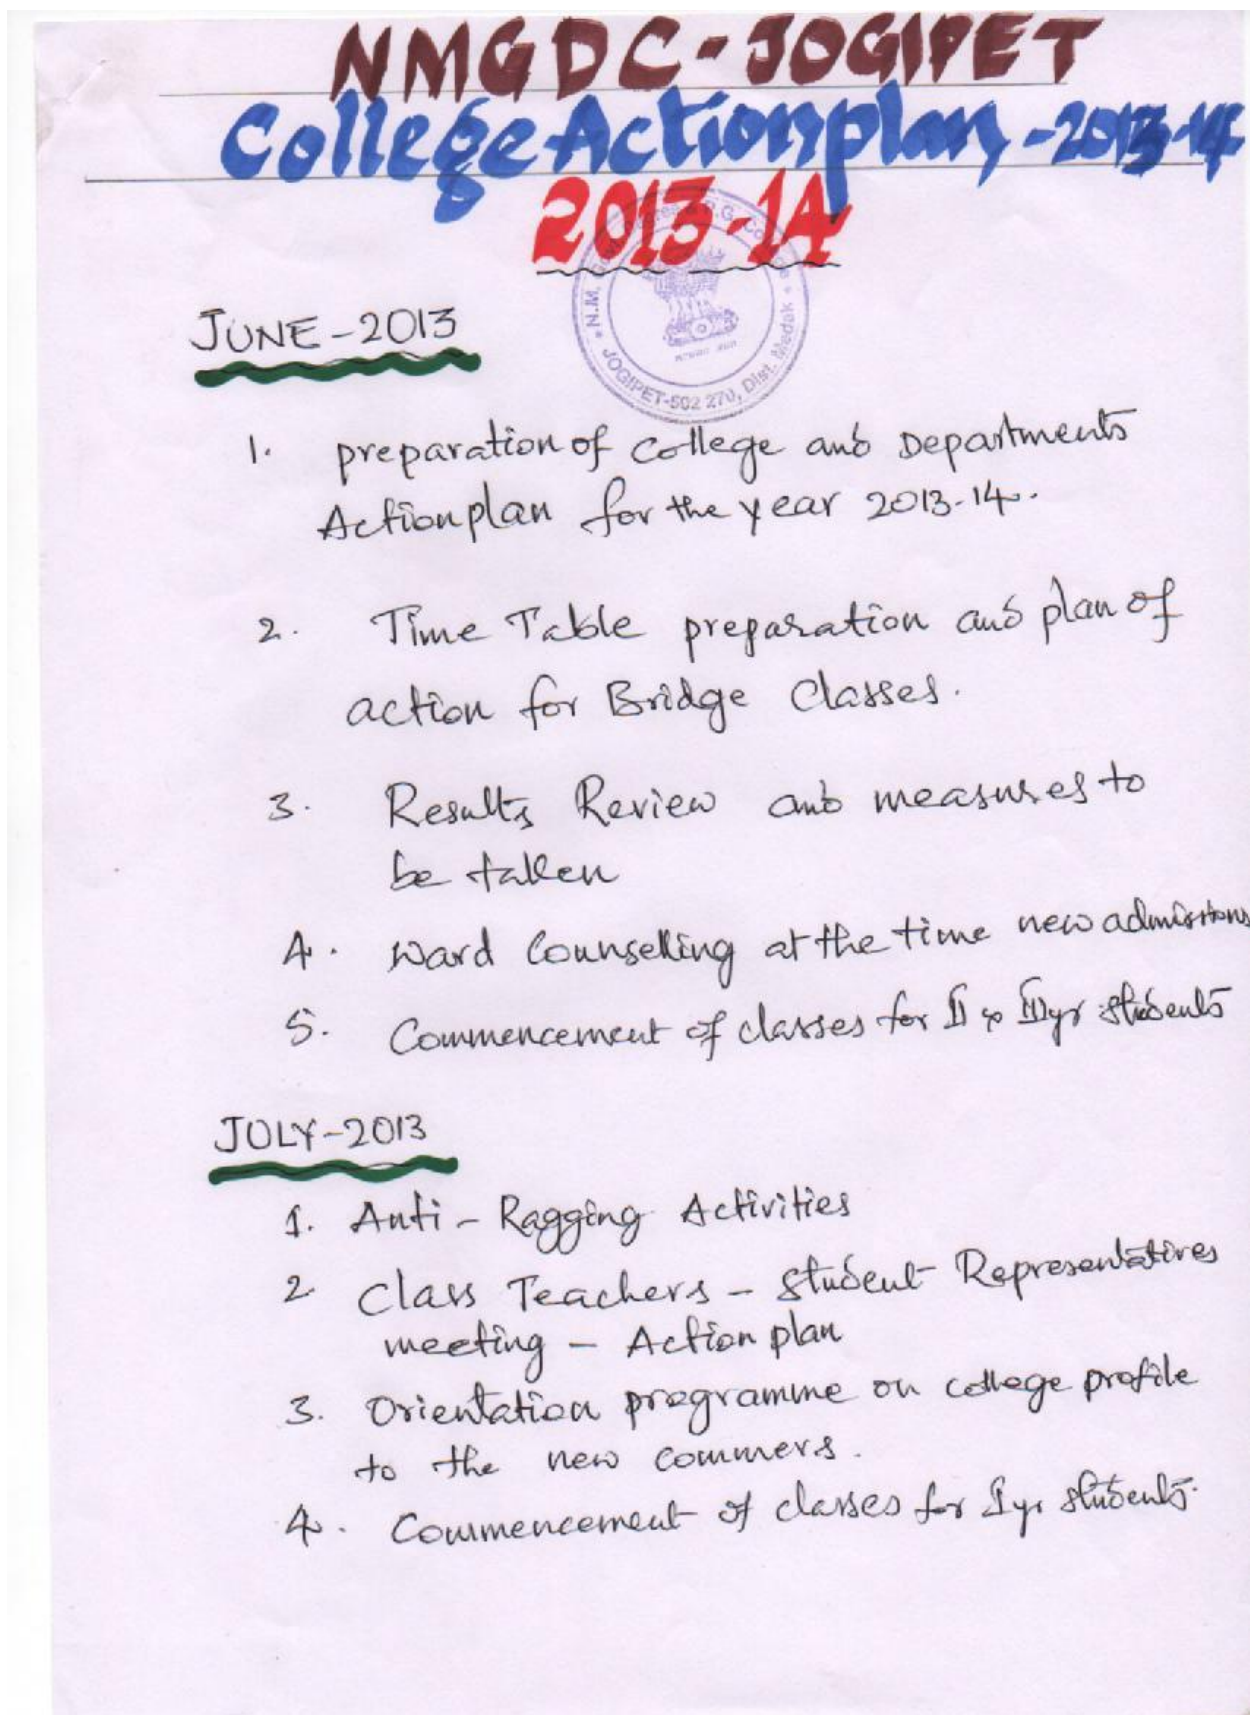 NMGDC-JOGIPET
College Action plan, -2013-14
2013-14
N.M. Degree & P.G. Co
JOGIPET-502 270, Dist. Medak
JUNE-2013
1. preparation of College and Departments
Action plan for the year 2013-14.
2. Time Table preparation and plan of
action for Bridge Classes.
3. Results Review and measures to
be taken
4. Ward Counselling at the time new admissions
5. Commencement of classes for II & III yr students
JULY-2013
1. Anti-Ragging Activities
2 Class Teachers - Student Representatives
meeting - Action plan
3. Orientation programme on college profile
to the new commers.
4. Commencement of classes for I yr students.